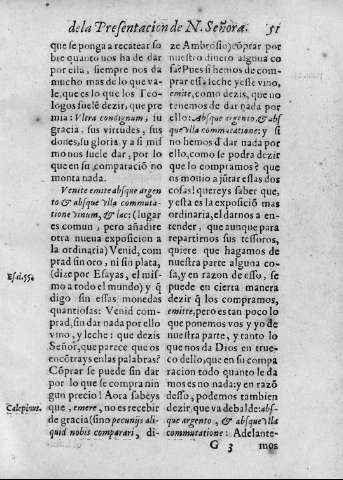 de la Presentacion de N. Señora. 51
que se ponga a recatear so
bre quanto nos ha de dar
por ella, siempre nos da
mucho mas de lo que va-
le, que es lo que los Teo-
logos suelē dezir, que pre
mia: Vltra condignum, su
gracia, sus virtudes, sus
dones, su gloria, y a si mis
mo nos suele dar, por lo
que en su cōparació no
monta nada.
Venite emite absque argen
to & absque vlla commuta-
tione vinum, & lac: (lugar
es comun, pero añadire
otra nueva exposicion a
la ordinaria) Venid, com
prad sin oro, ni sin plata,
(dize por Esayas, el mis-
mo a todo el mundo) y q̄
digo sin essas monedas
quantiosas: Venid com-
prad, sin dar nada por ello
vino, y leche: que dezis
Señor, que parece que os
encōtrays en las palabras?
Cōprar se puede sin dar
por lo que se compra nin
gun precio! Aora sabeys
que, emere, no es recebir
de gracia (sino pecunijs ali-
quid nobis comparari, di-
Esai. 55.
Calepinus.
ze Ambrosio) cōprar por
nuestro dinero alguna co
sa? Pues si hemos de com-
prar essa leche y esse vino,
emite, como dezis, que no
tenemos de dar nada por
ello: Absque argento, & abs
que vlla commutatione: y si
no hemos d̄ dar nada por
ello, como se podra dezir
que lo compramos? que
os movio a jūtar essas dos
cosas? quereys saber que,
y esta es la exposició mas
ordinaria, el darnos a en-
tender, que aunque para
repartirnos sus tesoros,
quiere que hagamos de
nuestra parte alguna co-
sa, y en razon de esso, se
puede en cierta manera
dezir q̄ los compramos,
emitte, pero es tan poco lo
que ponemos vos y yo de
nuestra parte, y tanto lo
que nos da Dios en true-
co dello, que en su compa
racion todo quanto le da
mos es no nada: y en razō
desso, podemos tambien
dezir, que va de balde: abs-
que argento, & absque vlla
commutatione: Adelante-
G 3 mos